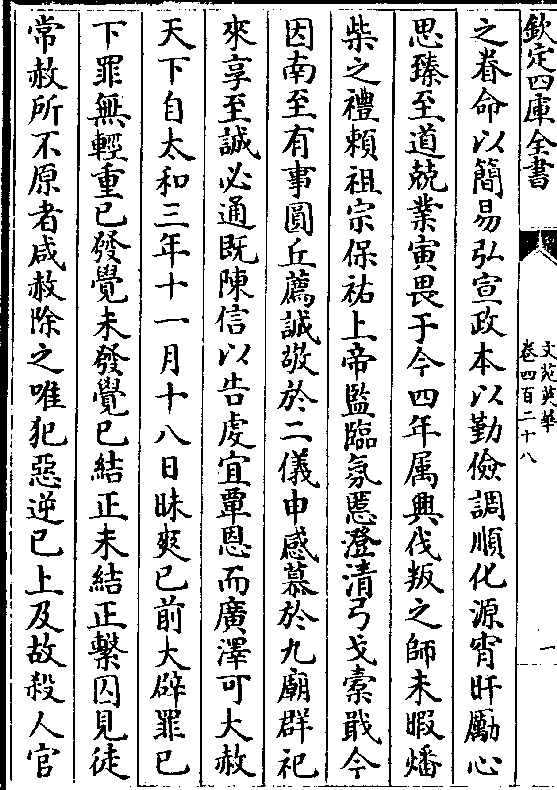 欽定四庫全書
文苑英華
卷四百二十八
一
之眷命以簡易弘宣政本以勤儉調順化源宵旰勵心
思臻至道兢業寅畏于今四年属興伐叛之師未暇燔
柴之禮頼祖宗保祐上帝監臨氛慝澄清弓戈櫜戢今
因南至有事圓丘薦誠敬於二儀申感慕於九廟群祀
來享至誠必通既陳信以告虔宜覃恩而廣澤可大赦
天下自太和三年十一月十八日昧爽已前大辟罪已
下罪無輕重已發覺未發覺已結正未結正繫囚見徒
常赦所不原者咸赦除之唯犯惡逆已上及故殺人官